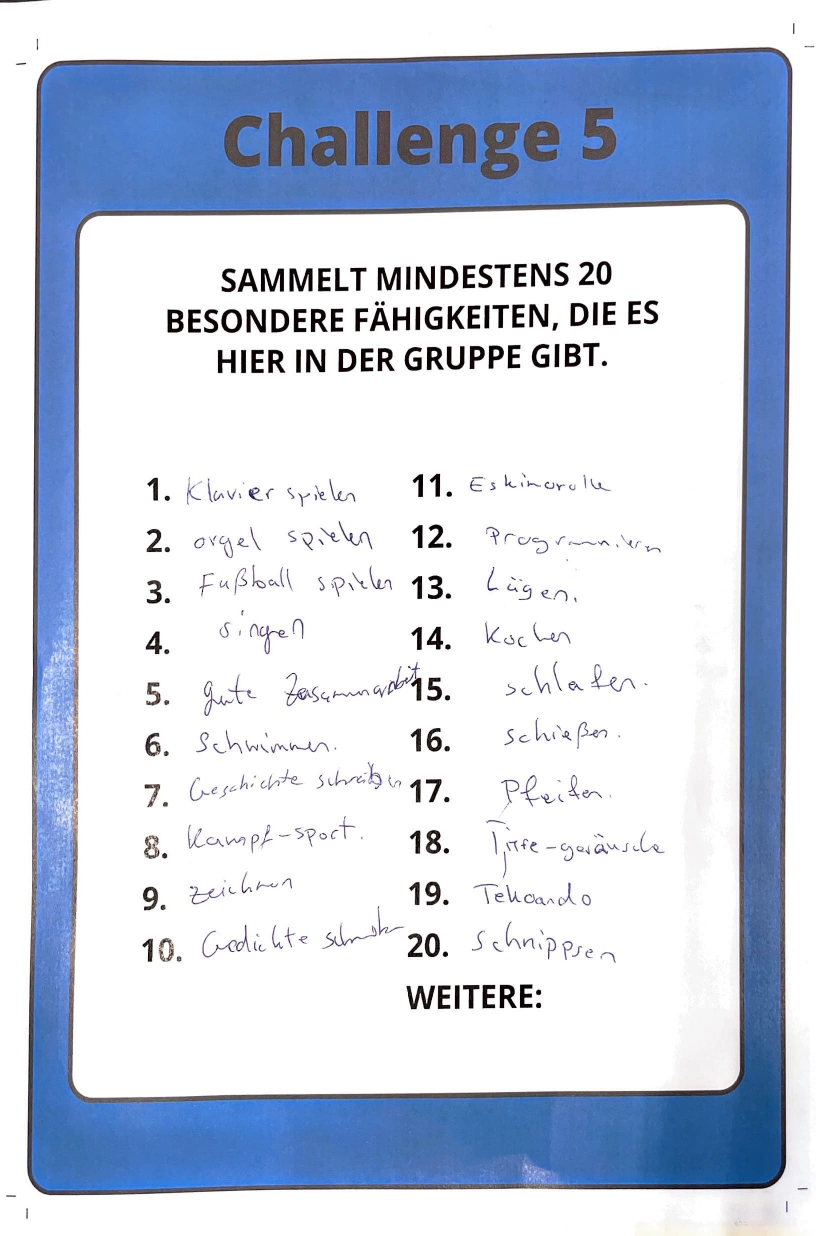 Challenge 5
SAMMELT MINDESTENS 20
BESONDERE FÄHIGKEITEN, DIE ES
HIER IN DER GRUPPE GIBT.
1. Klavier spielen
2. orgel spielen
3. Fußball spielen
4. singen
5. gute Zusammarbeit
6. Schwimmen.
7. Geschichte schreiben
8. Kampf-sport.
9. zeichnen
10. Gedichte schreiben
11. Eskimorolle
12. Programmieren
13. Lügen.
14. Kochen
15. schlafen.
16. schießen.
17. Pfeifen.
18. Tire-geräusche
19. Tekoando
20. Schnippsen
WEITERE: